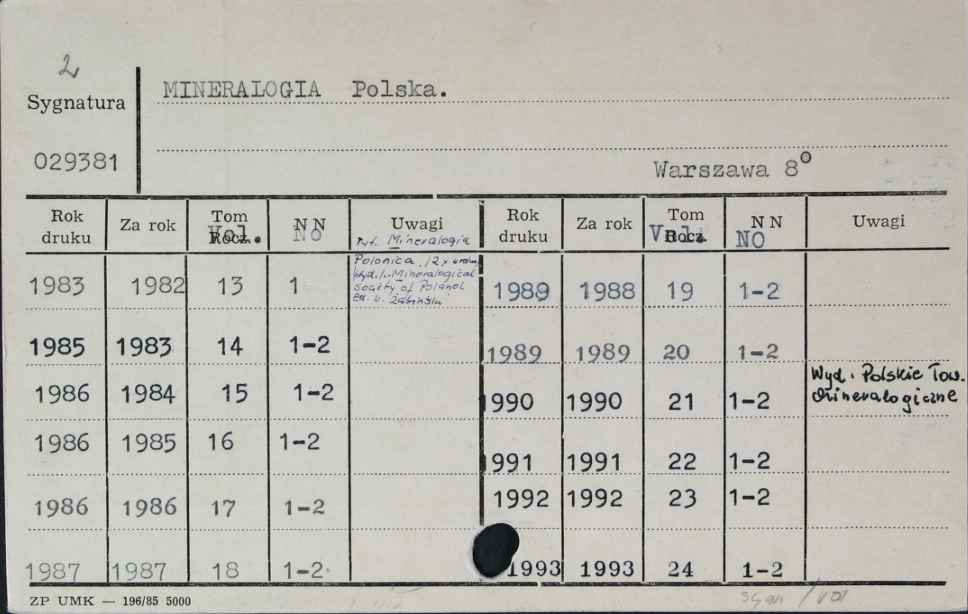 2
Sygnatura
MINERALOGIA Polska.
029381
Warszawa 8°
Rok druku Za rok Tom Rocz. Vol. NN NO Uwagi Rok druku Za rok Tom Rocz. Vol. NN NO Uwagi
Tyt. Mineralogia
Polonica. /2 x
Wyd. Mineralogical
Society of Poland
Ed. W. Żabiński
1983 1982 13 1 1989 1988 19 1-2
1985 1983 14 1-2 1989 1989 20 1-2
1986 1984 15 1-2 1990 1990 21 1-2 Wyd. Polskie Tow.
Mineralogiczne
1986 1985 16 1-2 1991 1991 22 1-2
1986 1986 17 1-2 1992 1992 23 1-2
1987 1987 18 1-2. 1993 1993 24 1-2
ZP UMK — 196/85 5000